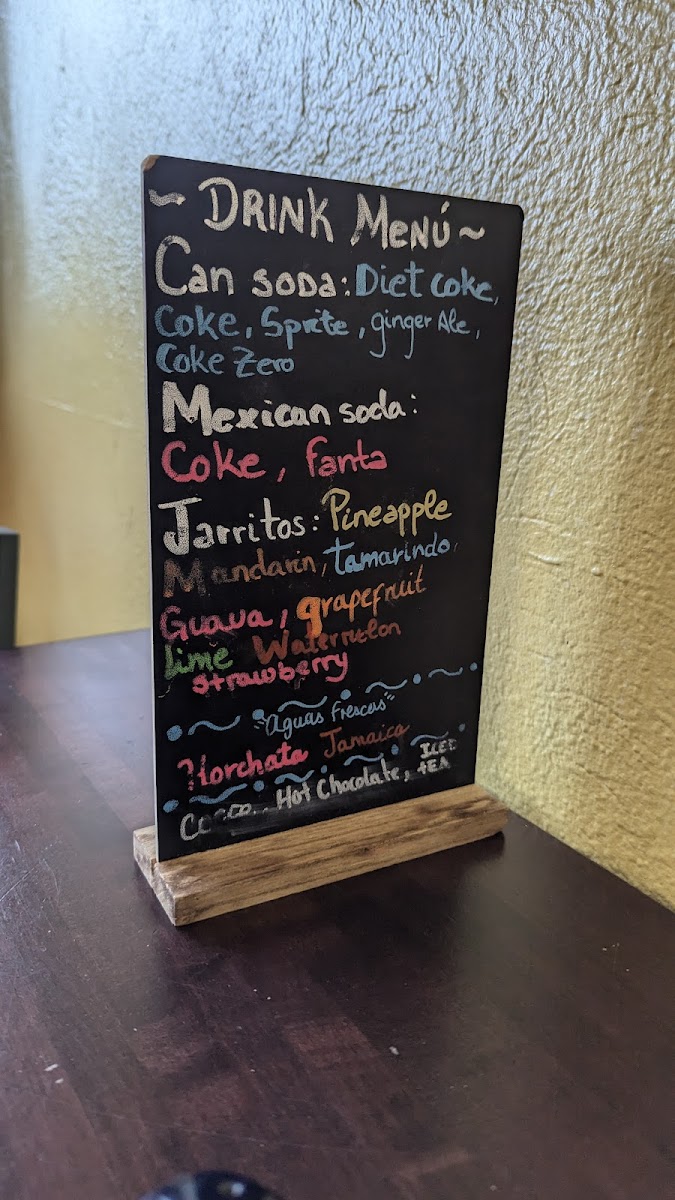 ~ DRINK MENÚ ~
Can soda: Diet coke,
Coke, Sprite, ginger Ale,
Coke Zero
Mexican soda:
Coke, fanta
Jarritos: Pineapple
Mandarin, tamarindo,
Guava, grapefruit
lime Watermelon
strawberry
"Aguas Frescas"
Horchata Jamaica
Hot Chocolate, ICED
tEA